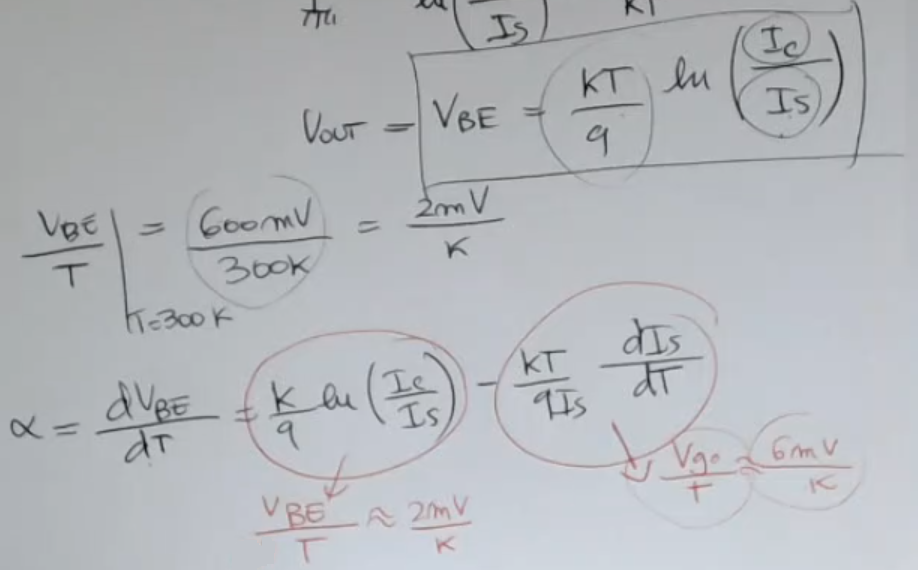 Is) KT
VOUT = VBE = KT/q ln (Ic/Is)
VBE/T | T=300K = 600mV/300K = 2mV/K
α = dVBE/dT = K/q ln (Ic/Is) - KT/qIs dIs/dT
VBE/T ≈ 2mV/K
Vgo/T ≈ 6mV/K